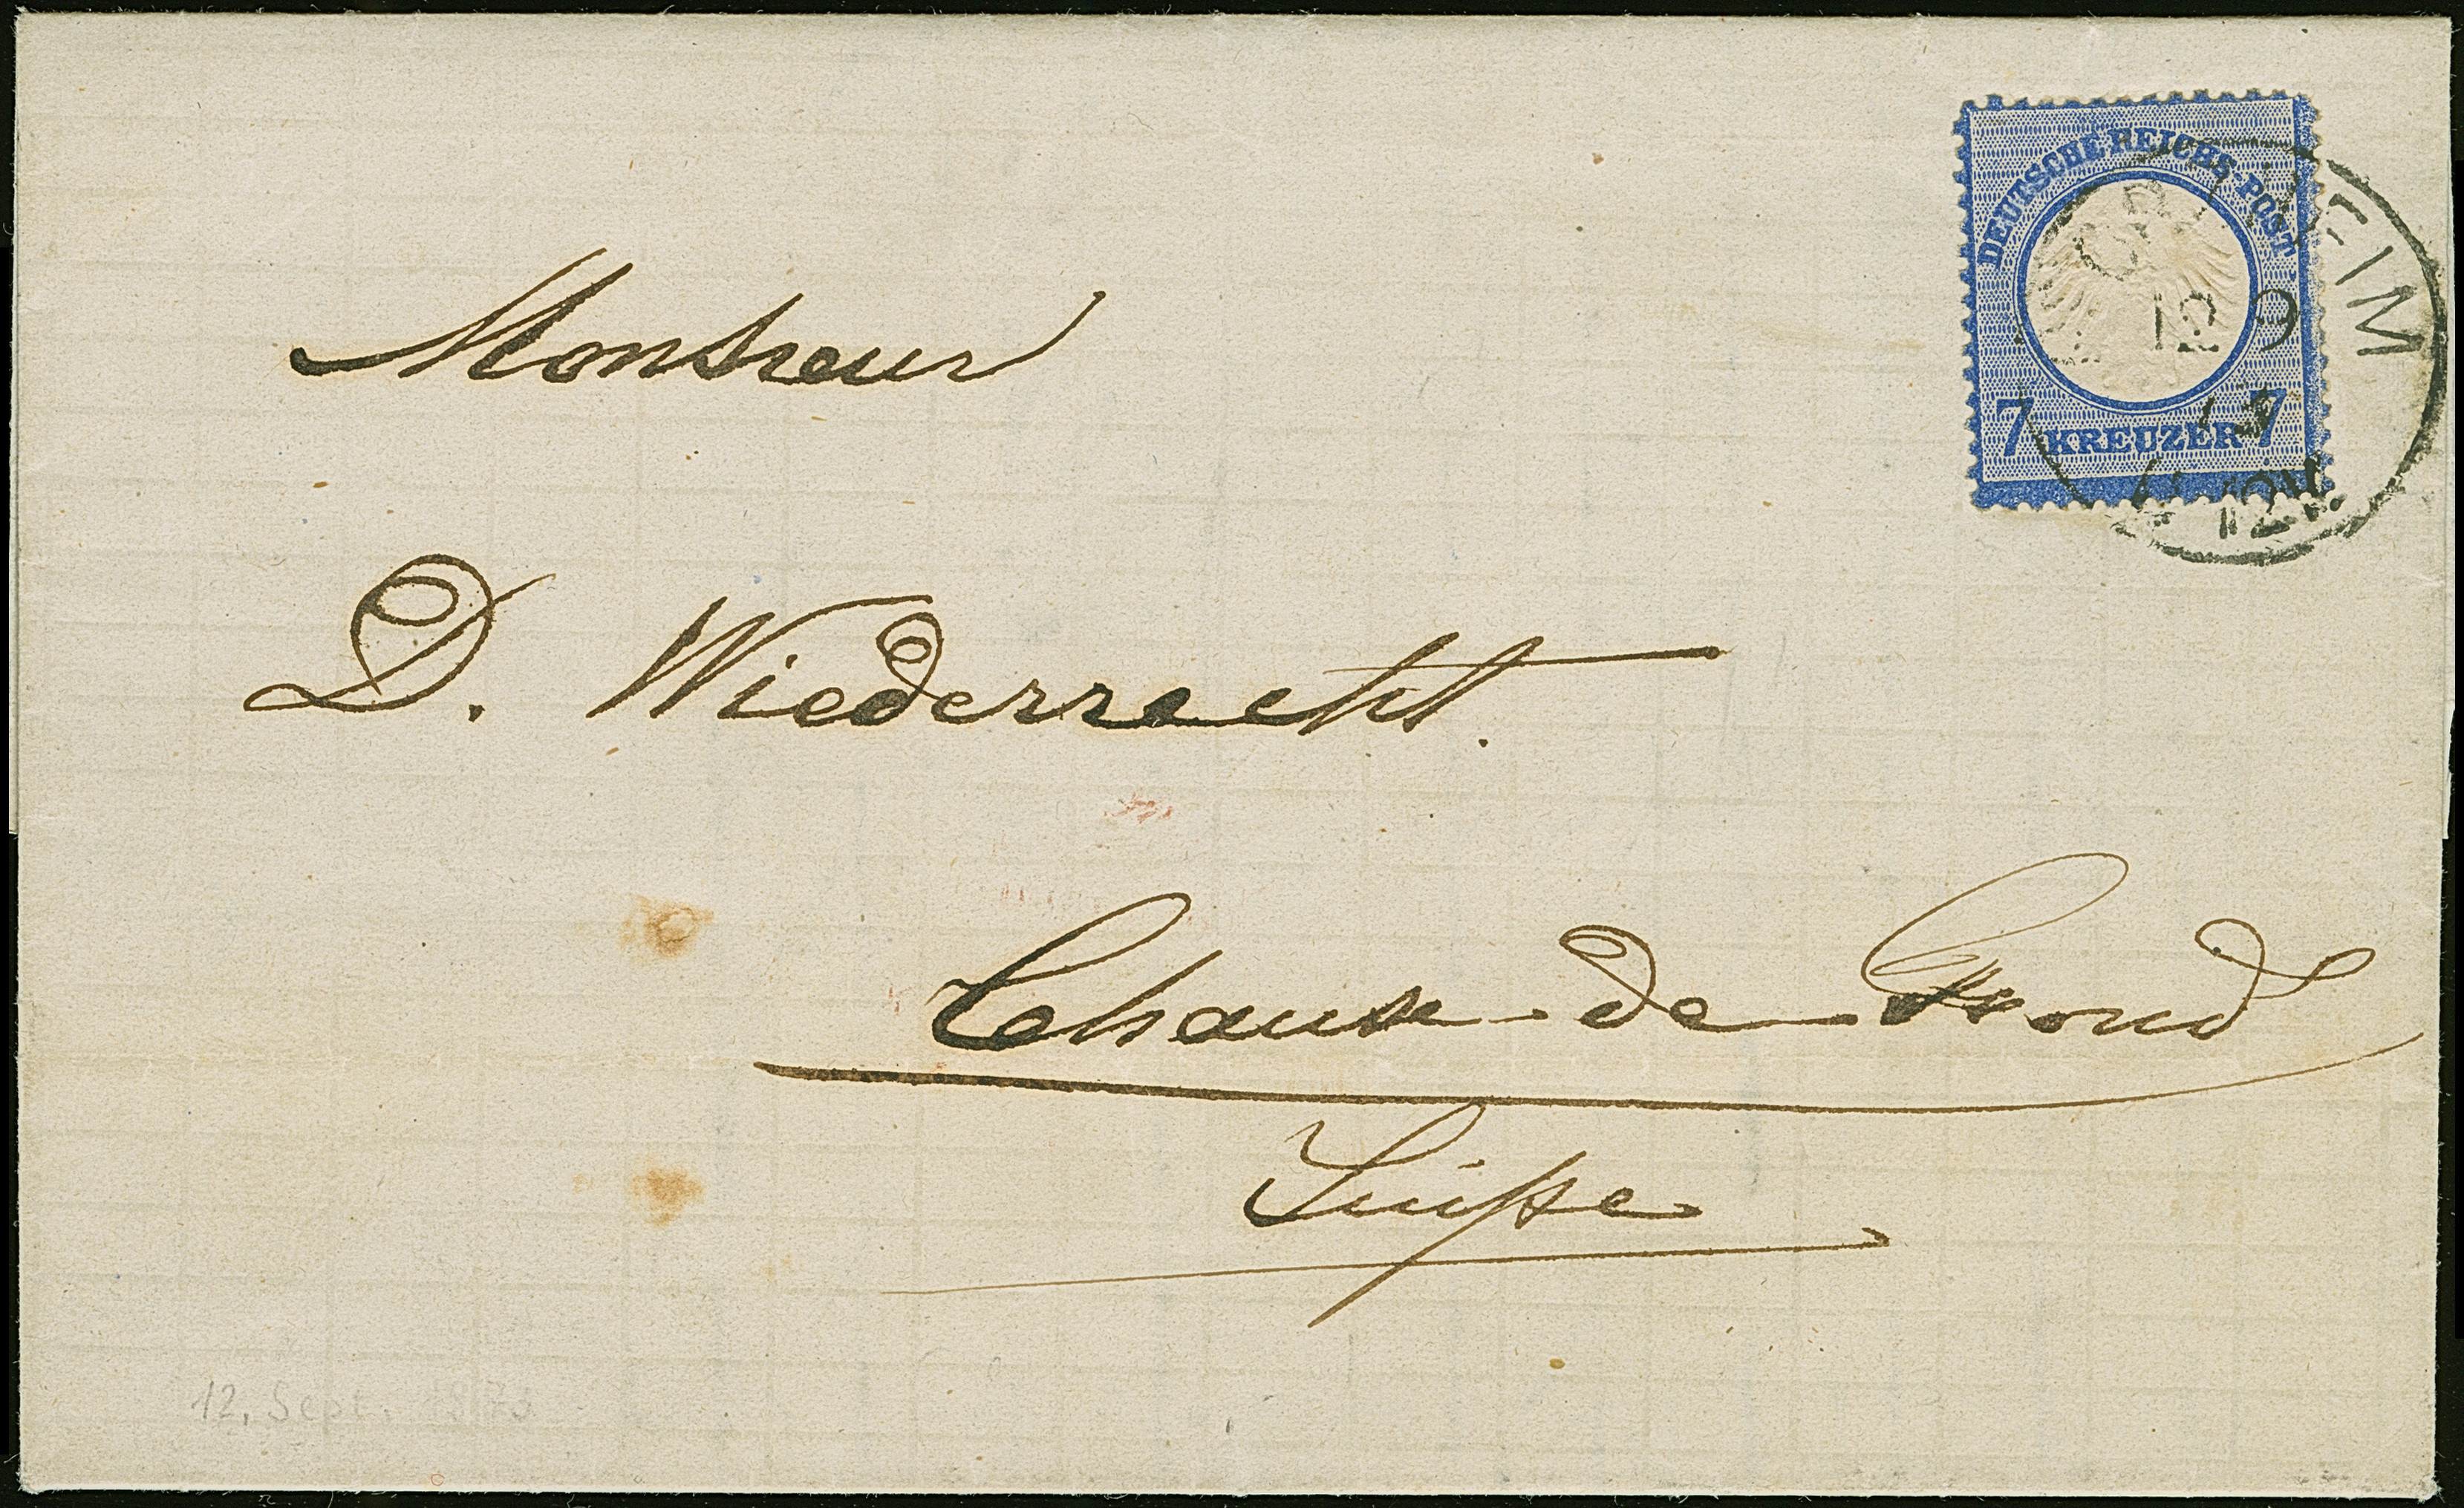 DEUTSCHE REICHS-POST
12 9
7 KREUZER 7
Monsieur
D. Wiederrecht.
Chaux-de-Fond
Suisse
12. Sept. 1873